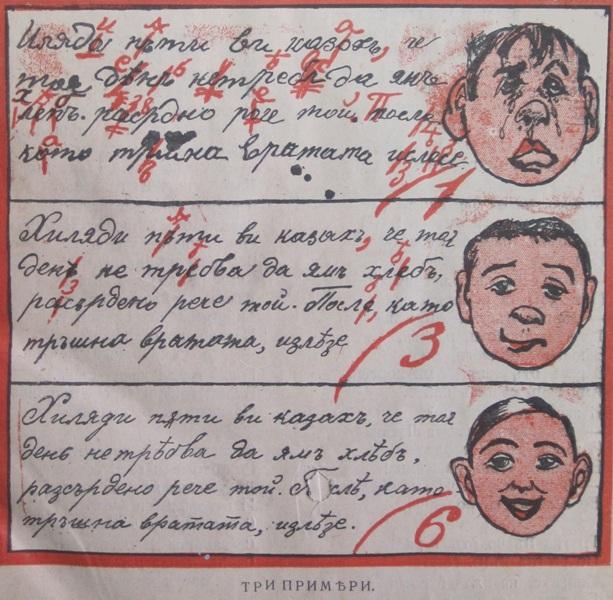 Иляди пѫти ви казохъ, че
тоя дѣнъ нетребя да ямъ
лепъ. расрдно рече той. После
като тршна вратата излезе
1
Хиляди пѫти ви казахъ, че тоя
денъ не требва да ямъ хлебъ,
расърдено рече той. После, като
тръшна вратата, излѣзе
3
Хиляди пѫти ви казахъ, че тоя
день нетрѣбва да ямъ хлѣбъ,
разсърдено рече той. Послѣ, като
тръшна вратата, излѣзе.
6
ТРИ ПРИМѢРИ.